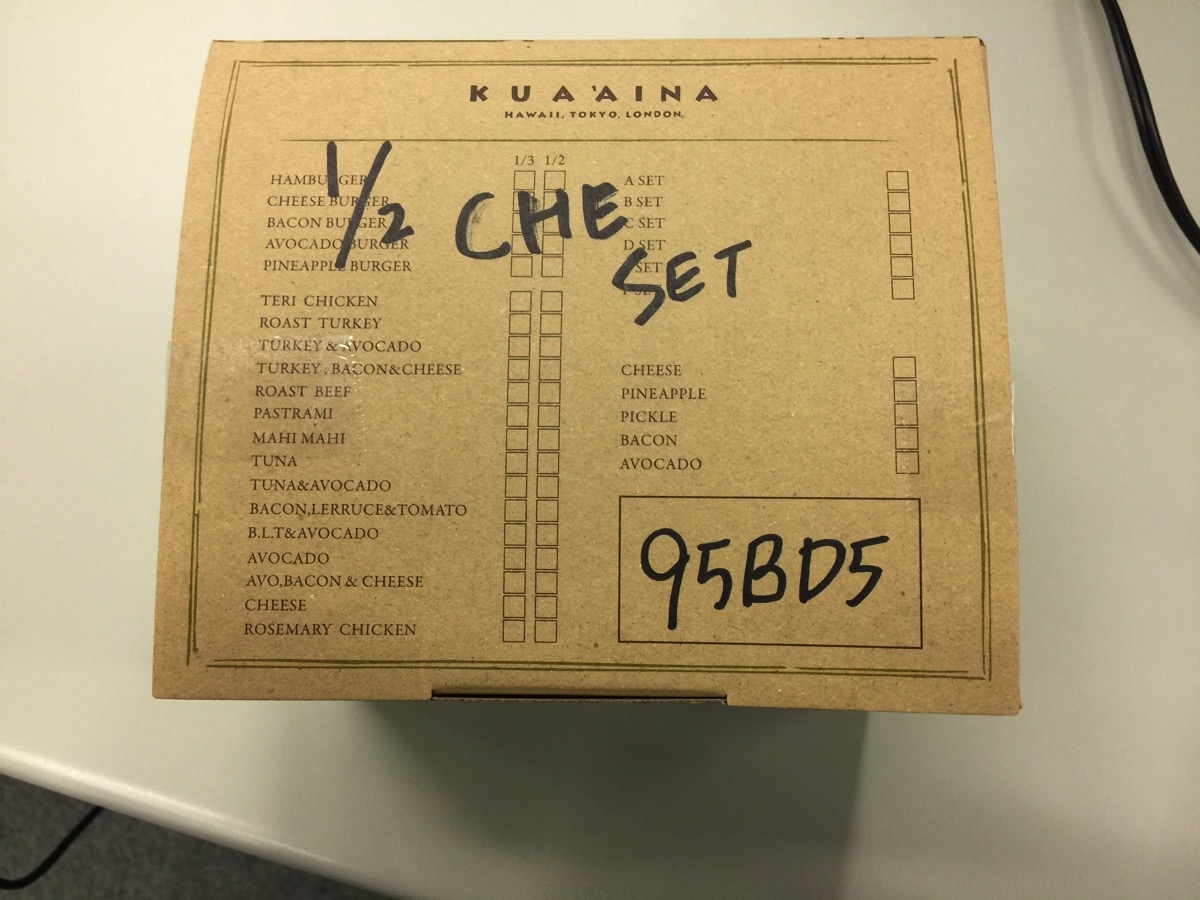 KUA'AINA
HAWAII, TOKYO, LONDON.
1/3 1/2
HAMBURGER
CHEESE BURGER
BACON BURGER
AVOCADO BURGER
PINEAPPLE BURGER
TERI CHICKEN
ROAST TURKEY
TURKEY & AVOCADO
TURKEY, BACON&CHEESE
ROAST BEEF
PASTRAMI
MAHI MAHI
TUNA
TUNA&AVOCADO
BACON,LERRUCE&TOMATO
B.L.T&AVOCADO
AVOCADO
AVO,BACON & CHEESE
CHEESE
ROSEMARY CHICKEN
A SET
B SET
C SET
D SET
SET
CHEESE
PINEAPPLE
PICKLE
BACON
AVOCADO
1/2 CHE
SET
95BD5